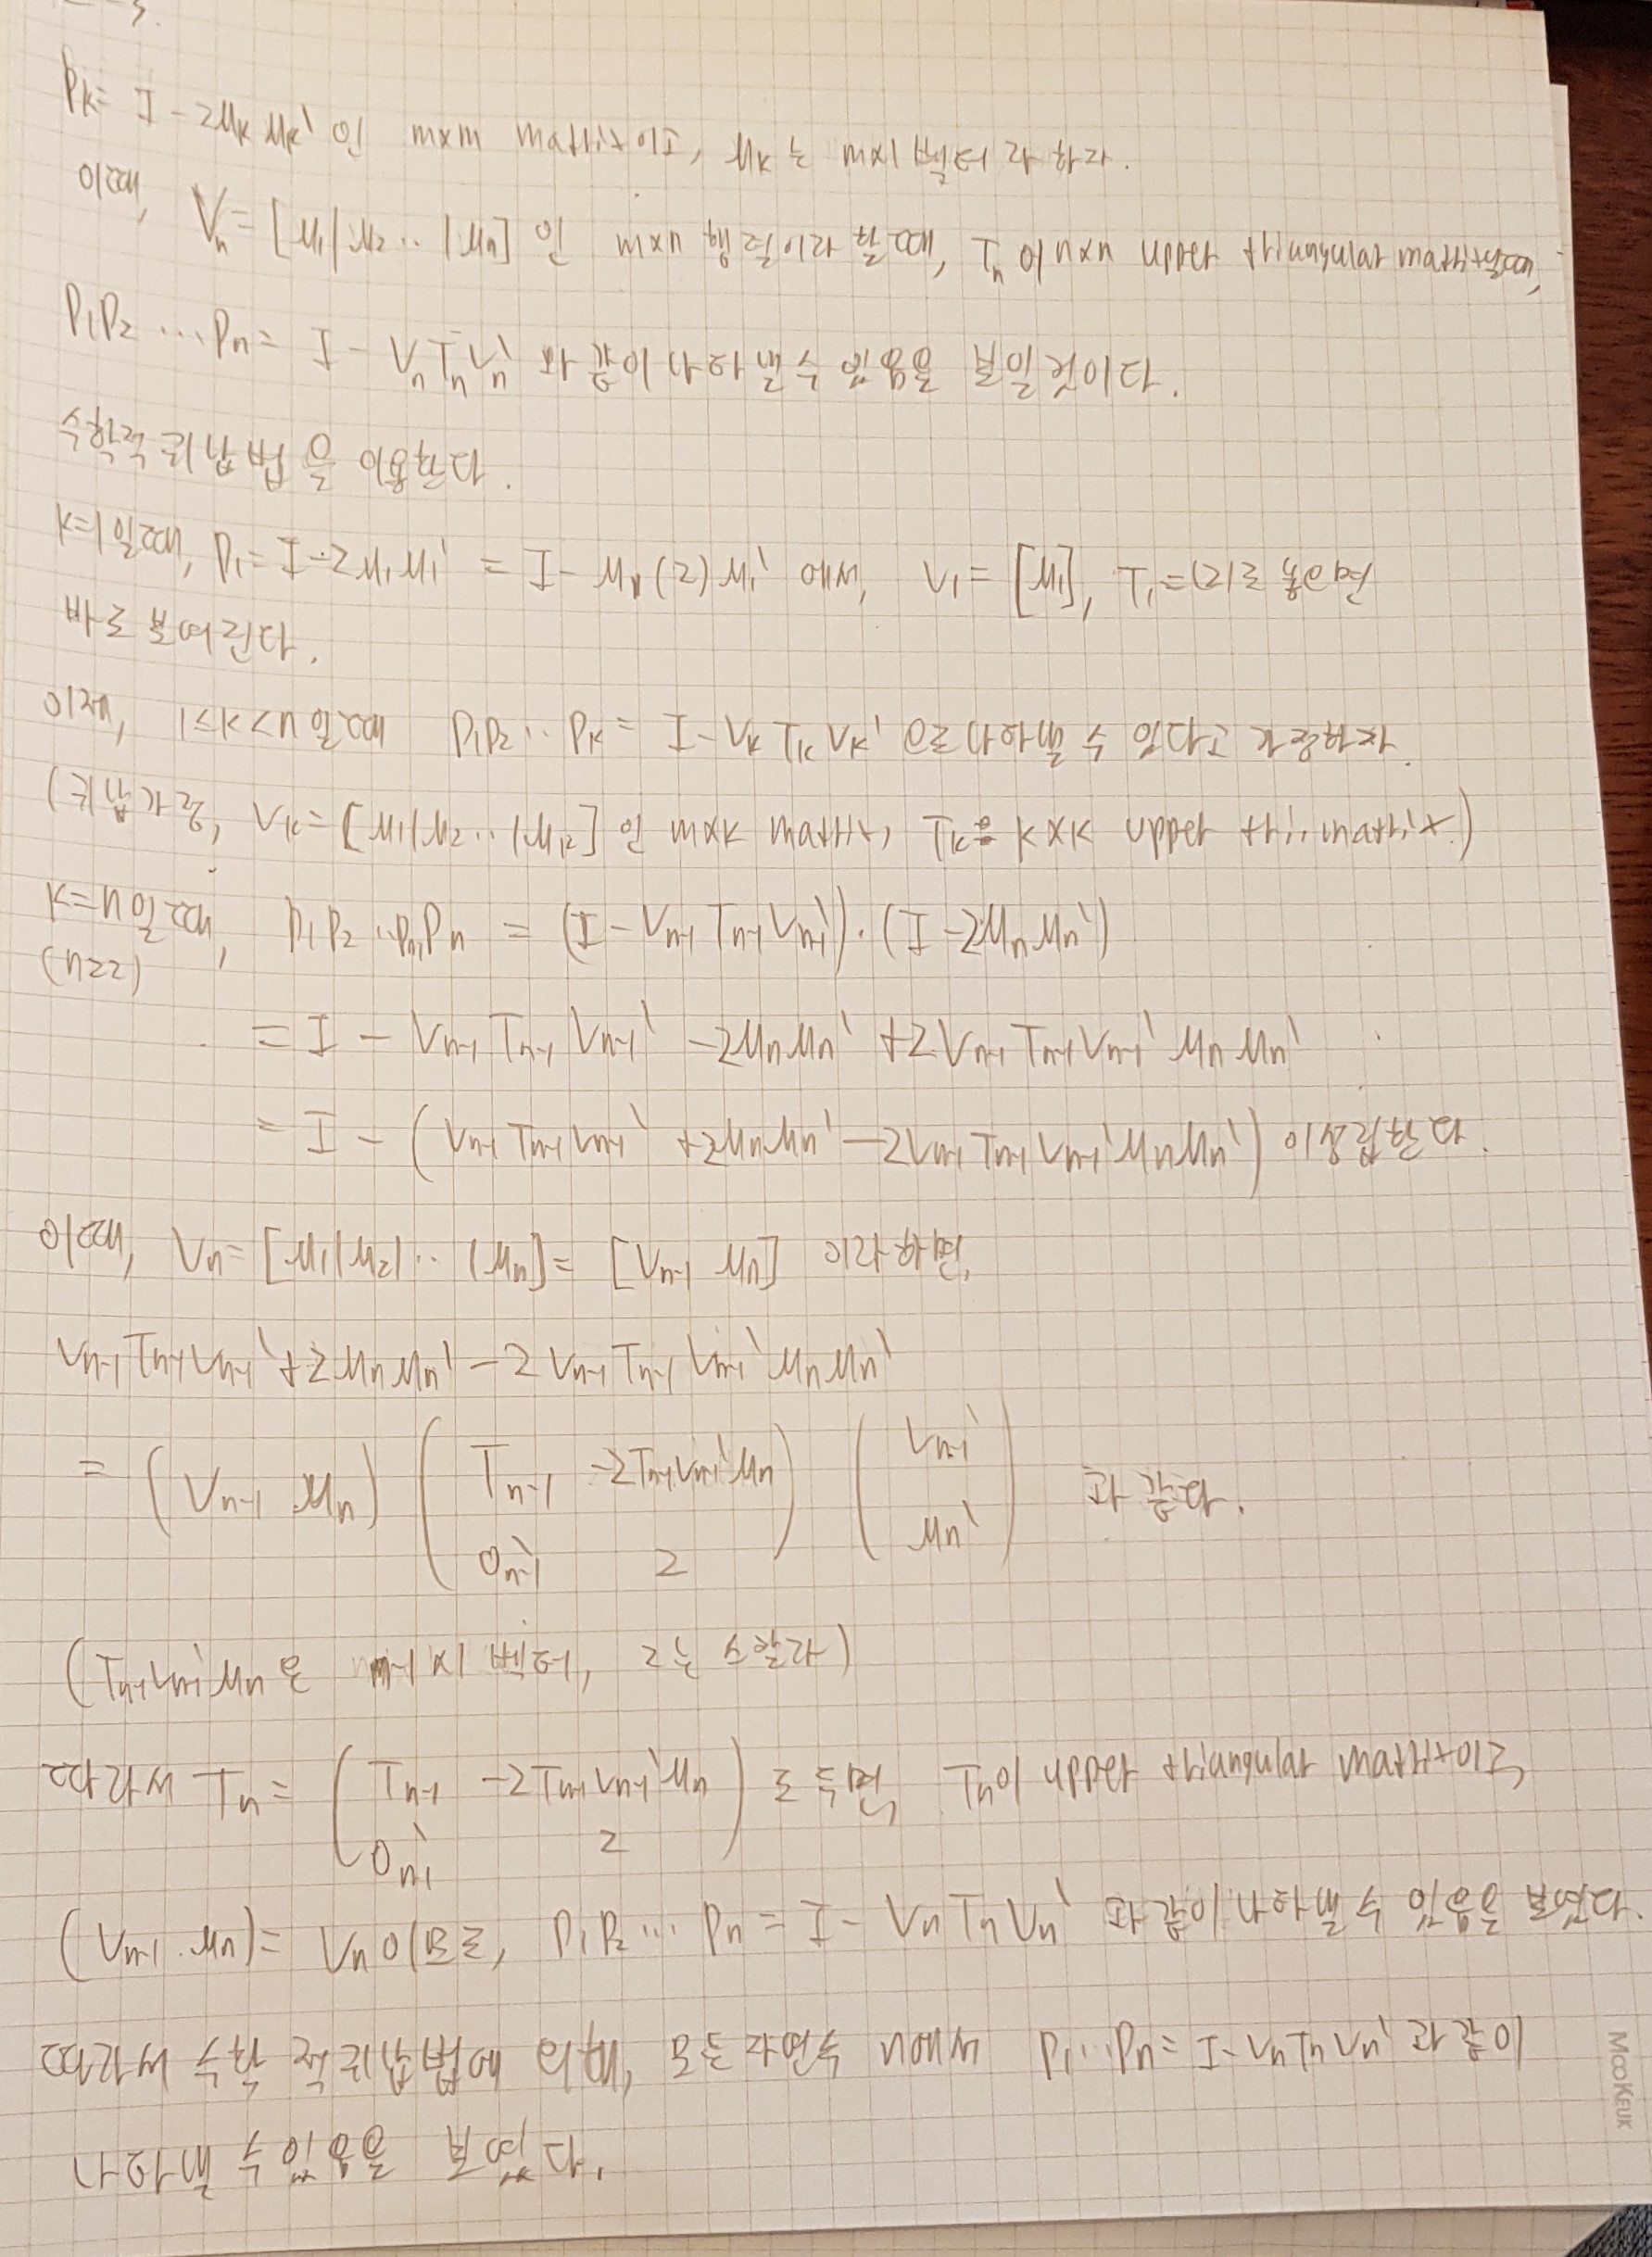 P_k = I - 2u_k u_k' 인 m×m matrix이고, u_k 는 m×1 벡터라 하자.
이때, V_n = [u_1|u_2..|u_n] 인 m×n 행렬이라 할때, T_n이 n×n upper triangular matrix일때,
P_1P_2 ... P_n = I - V_nT_nV_n' 와 같이 나타낼 수 있음을 보일 것이다.
수학적 귀납법을 이용한다.
k=1일때, P_1 = I - 2u_1u_1' = I - u_1(2)u_1' 에서, V_1 = [u_1], T_1 = (2)로 놓으면
바로 보여진다.
이제, 1≤k<n일때 P_1P_2..P_k = I - V_kT_kV_k' 으로 나타낼 수 있다고 가정하자.
(귀납가정, V_k = [u_1|u_2..|u_k] 인 m×k matrix, T_k는 k×k upper tri. matrix.)
k=n일때, P_1P_2..P_{n-1}P_n = (I - V_{n-1}T_{n-1}V_{n-1}')·(I - 2u_nu_n')
(n≥2)
= I - V_{n-1}T_{n-1}V_{n-1}' - 2u_nu_n' + 2V_{n-1}T_{n-1}V_{n-1}'u_nu_n'
= I - (V_{n-1}T_{n-1}V_{n-1}' + 2u_nu_n' - 2V_{n-1}T_{n-1}V_{n-1}'u_nu_n') 이 성립한다.
이때, V_n = [u_1|u_2|..|u_n] = [V_{n-1} u_n] 이라 하면,
V_{n-1}T_{n-1}V_{n-1}' + 2u_nu_n' - 2V_{n-1}T_{n-1}V_{n-1}'u_nu_n'
= (V_{n-1} u_n) (T_{n-1} -2T_{n-1}V_{n-1}'u_n) (V_{n-1}') 과 같다.
0_{n-1}' 2 u_n'
(T_{n-1}V_{n-1}'u_n은 n-1×1 벡터, 2는 스칼라)
따라서 T_n = (T_{n-1} -2T_{n-1}V_{n-1}'u_n) 로 두면, T_n이 upper triangular matrix이고,
0_{n-1}' 2
(V_{n-1} u_n) = V_n 이므로, P_1P_2 ... P_n = I - V_nT_nV_n' 과 같이 나타낼 수 있음을 보였다.
따라서 수학적 귀납법에 의해, 모든 자연수 n에서 P_1...P_n = I - V_nT_nV_n' 과 같이
나타낼 수 있음을 보였다.
MOOKEUK